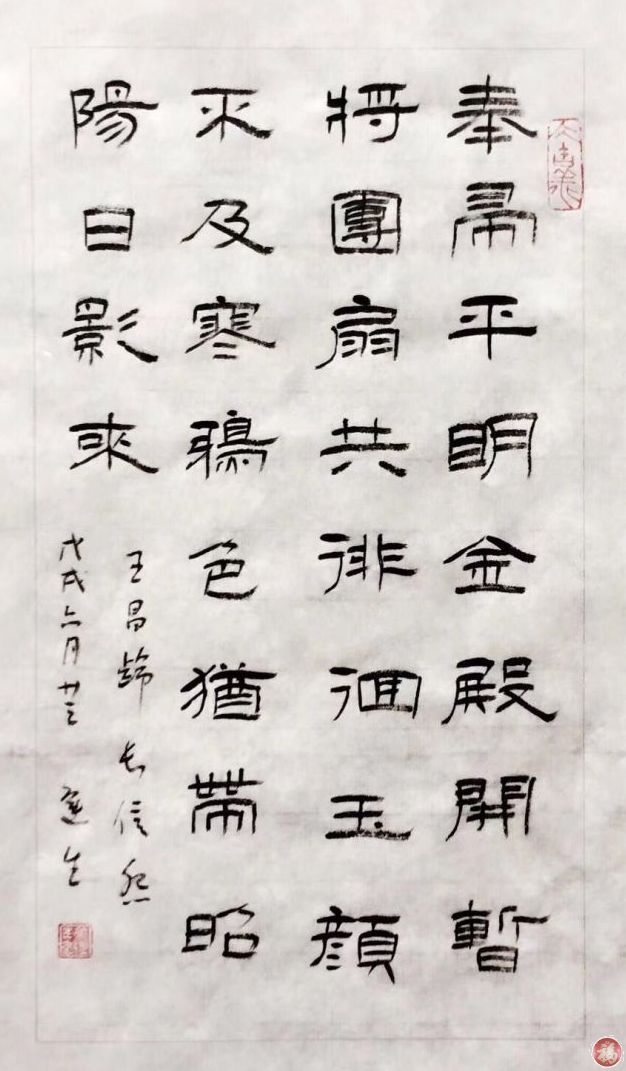 奉帚平明金殿開暫
將團扇共徘徊玉顏
不及寒鴉色猶帶昭
陽日影來
王昌齡長信怨
戊戌六月廿三